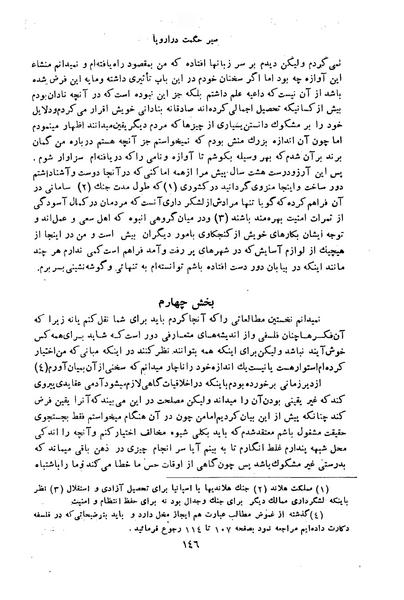 سیر حکمت در اروپا
نمی‌کردم ولیکن دیدم بر سر زبانها افتاده که من بمقصود راه یافته‌ام و نمیدانم منشاء
این آوازه چه بود اما اگر سخنان خودم در این باب تأثیری داشته و مایه این فرض شده
باشد از آن نیست که داعیه علم داشتم بلکه جز این نبوده است که در آنچه نادان بودم
بیش از کسانیکه تحصیل اجمالی کرده‌اند صادقانه بنادانی خویش اقرار می‌کردم و دلایل
خود را بر مشکوک دانستن بسیاری از چیزها که مردم دیگر یقین میدانند اظهار مینمودم
اما چون آن اندازه بزرگ منش بودم که نمیخواستم جز آنچه هستم درباره من گمان
برند بر آن شدم که بهر وسیله بکوشم تا آوازه و نامی را که دریافته‌ام سزاوار شوم .
پس این آرزو درست هشت سال پیش مرا از همه اماکنی که در آنجا دوست و آشنا داشتم
دور ساخت و اینجا منزوی گردانید در کشوری (۱) که طول مدت جنك (۲) سامانی در
آن فراهم کرده که گویا تنها مرادش از لشکر داری آنست که مردمان در کمال آسودگی
از ثمرات امنیت بهره‌مند باشند (۳) و در میان گروهی انبوه که اهل سعی و عمل‌اند و
توجه ایشان بکارهای خویش از کنجکاوی بامور دیگران بیش است و من در اینجا از
هیچیک از لوازم آسایش که در شهرهای پر رفت و آمد فراهم است کمی ندارم هر چند
مانند اینکه در بیابان دور دست افتاده باشم توانسته‌ام به تنهائی و گوشه‌نشینی بسر برم.
بخش چهارم
نمیدانم نخستین مطالعاتی را که آنجا کردم باید برای شما نقل کنم یا نه زیرا که
آن فکرها چنان فلسفی و از اندیشه‌های متعارفی دور است که شاید برای همه کس
خوش‌آیند نباشد ولیکن برای اینکه همه بتوانند نظر کنند در اینکه مبانی که من اختیار
کرده‌ام استوار هست یا نیست یك اندازه خود را ناچار میدانم که سخنی از آن بمیان آورم (٤)
از دیر زمانی برخورده بودم باینکه در اخلاقیات گاهی لازم میشود آدمی عقایدی پیروی
کند که غیر یقینی بودن آن را میداند ولیکن مصلحت در این می‌بیند که آنرا یقین فرض
کند چنانکه پیش از این بیان کردیم اما من چون در آن هنگام میخواستم فقط بجستجوی
حقیقت مشغول باشم معتقد شدم که باید بکلی شیوه مخالف اختیار کنم و آنچه را اندکی
محل شبهه پندارم غلط انگارم تا به بینم آیا سر انجام چیزی در ذهن باقی میماند که
بدرستی غیر مشکوک باشد پس چون گاهی از اوقات حس ما خطا می‌کند و ما را باشتباه
(۱) مملکت هلاند (۲) جنك هلاندیها با اسپانیا برای تحصیل آزادی و استقلال (۳) نظر
باینکه لشکرداری ممالك دیگر برای جنك و جدال بود نه برای حفظ انتظام و امنیت
(٤) گذشته از غموض مطالب عبارت هم ایجاز مخل دارد و باید بتوضیحاتی که در فلسفه
دکارت داده‌ایم مراجعه نمود بصفحه ۱۰۷ تا ۱۱٤ رجوع فرمائید .
۱٤٦